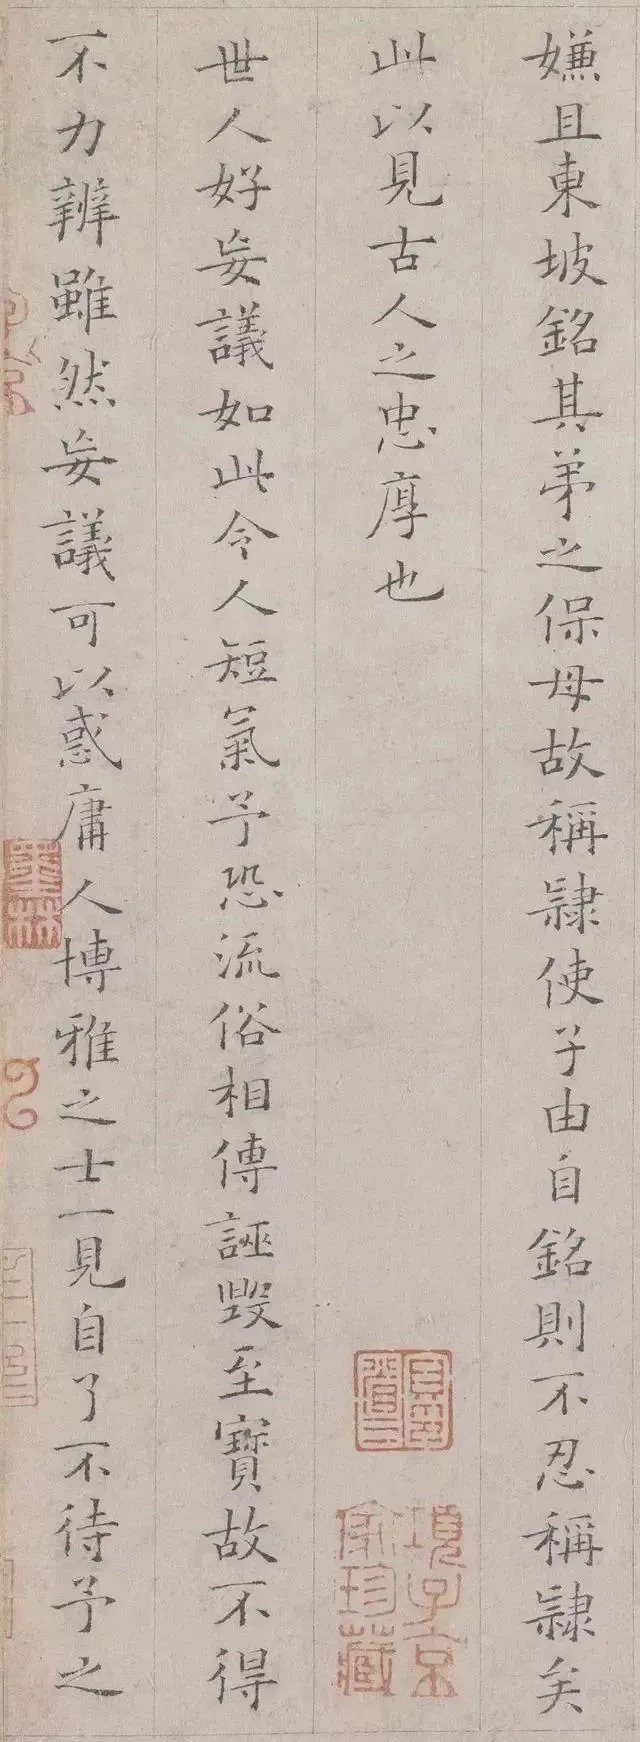 嫌且東坡銘其弟之保母故稱隷使子由自銘則不忍稱隷矣
此以見古人之忠厚也
世人好妄議如此令人短氣予恐流俗相傳誣毀至寶故不得
不力辨雖然妄議可以惑庸人博雅之士一見自了不待予之
項子京家珍藏
墨林